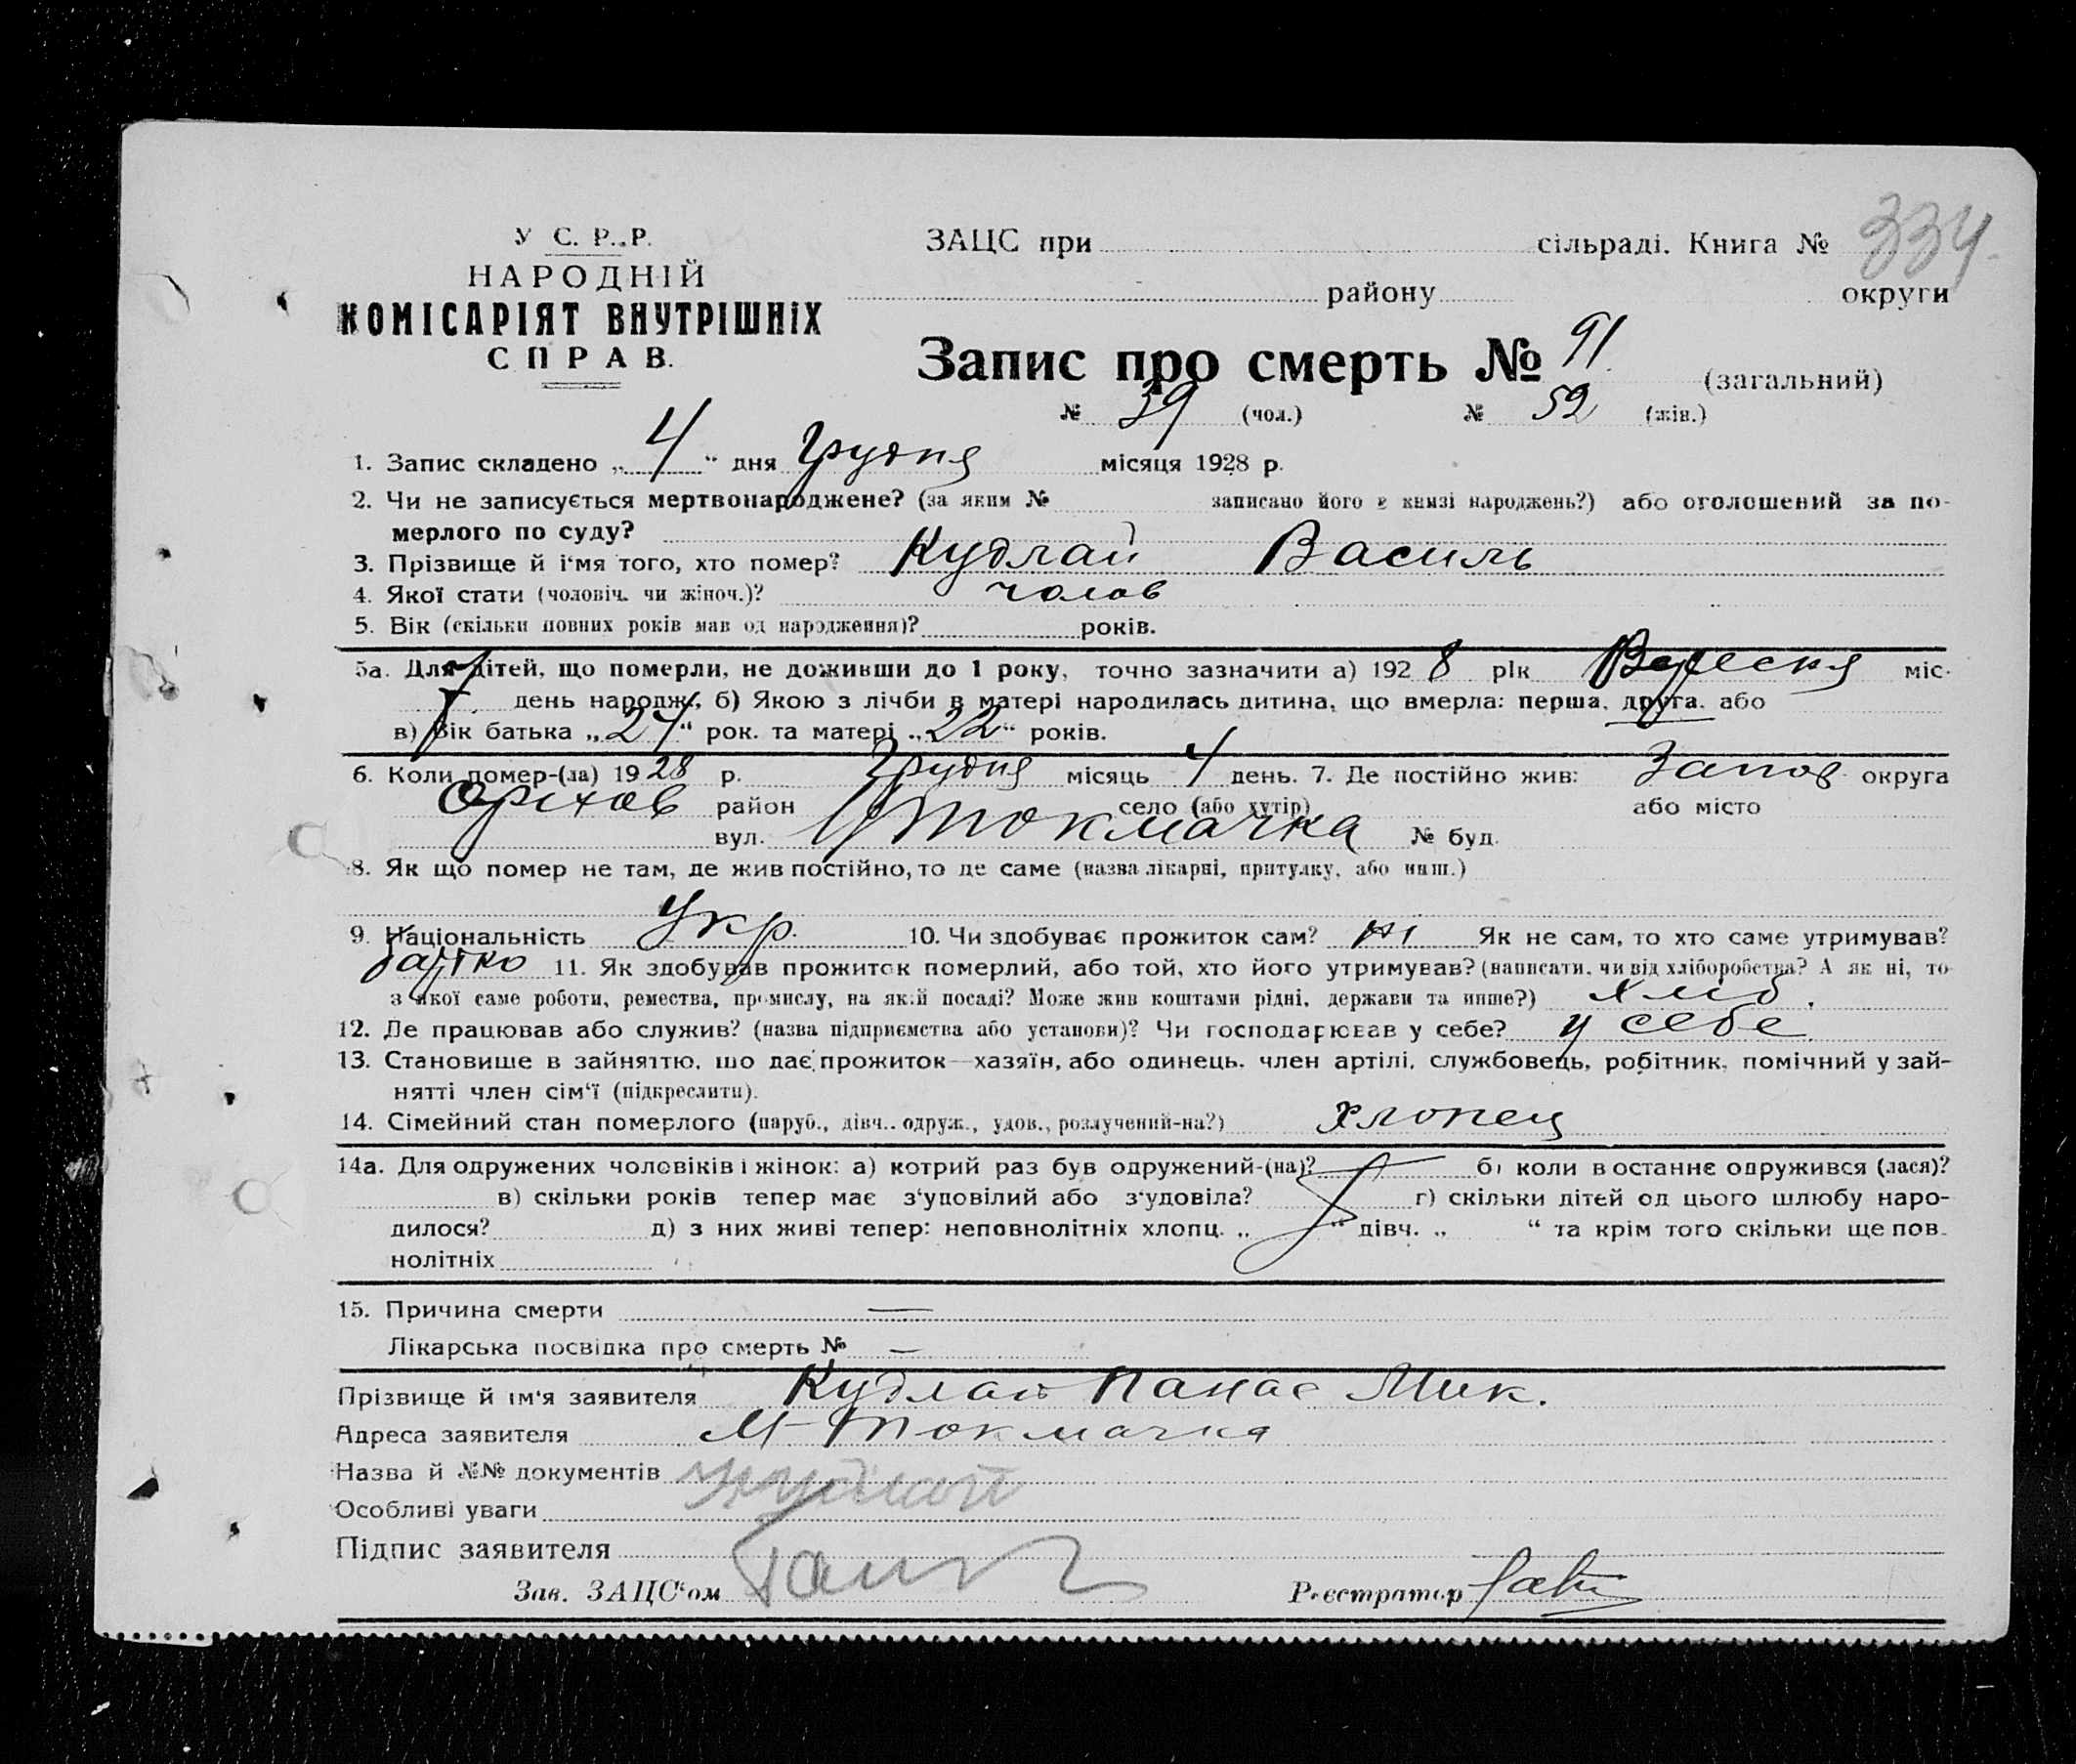 334
У С. Р. Р.
НАРОДНІЙ
КОМІСАРІЯТ ВНУТРІШНІХ
СПРАВ.
ЗАЦС при сільраді. Книга №
району округи
Запис про смерть № 91. (загальний)
№ 39 (чол.) № 52 (жін.)
1. Запис складено „ 4 “ дня Грудня місяця 1928 р.
2. Чи не записується мертвонароджене? (за яким № записано його в книзі народжень?) або оголошений за по-
мерлого по суду?
3. Прізвище й і‘мя того, хто помер? Кудлай Василь
4. Якої стати (чоловіч. чи жіноч.)? чолов
5. Вік (скільки повних років мав од народження)? років.
5а. Для дітей, що померли, не доживши до 1 року, точно зазначити а) 1928 рік Вересня міс.
день народж., б) Якою з лічби в матері народилась дитина, що вмерла: перша, друга, або
в) Вік батька „ “ рок. та матері „22“ років.
6. Коли помер-(ла) 1928 р. Грудня місяць 4 день. 7. Де постійно жив: Запор. округа
Оріхов район село (або хутір) або місто
вул. Токмачка № буд.
8. Як що помер не там, де жив постійно, то де саме (назва лікарні, притулку, або инш.)
9. Національність Укр. 10. Чи здобуває прожиток сам? ні Як не сам, то хто саме утримував?
батько 11. Як здобував прожиток померлий, або той, хто його утримував? (написати, чи від хліборобства? А як ні, то
з якої саме роботи, ремества, промислу, на якій посаді? Може жив коштами рідні, держави та инше?) хліб.
12. Де працював або служив? (назва підприємства або установи)? Чи господарював у себе? у себе
13. Становище в зайняттю, що дає прожиток—хазяїн, або одинець, член артілі, службовець, робітник, помічний у зай-
нятті член сім‘ї (підкреслити).
14. Сімейний стан померлого (паруб., дівч., одруж., удов., розлучений-на?) хлопец
14а. Для одружених чоловіків і жінок: а) котрий раз був одружений-(на)? б) коли в останнє одружився (лася)?
в) скільки років тепер має з‘уловілий або з‘удовіла? г) скільки дітей од цього шлюбу наро-
дилося? д) з них живі тепер: неповнолітніх хлопц. „ “ дівч. „ “ та крім того скільки ще пов.
нолітніх
15. Причина смерти —
Лікарська посвідка про смерть № —
Прізвище й ім‘я заявителя Кудлай Панас Мик.
Адреса заявителя М-Токмачка
Назва й №№ документів
Особливі уваги
Підпис заявителя
Зав. ЗАЦС‘ом
Реєстратор